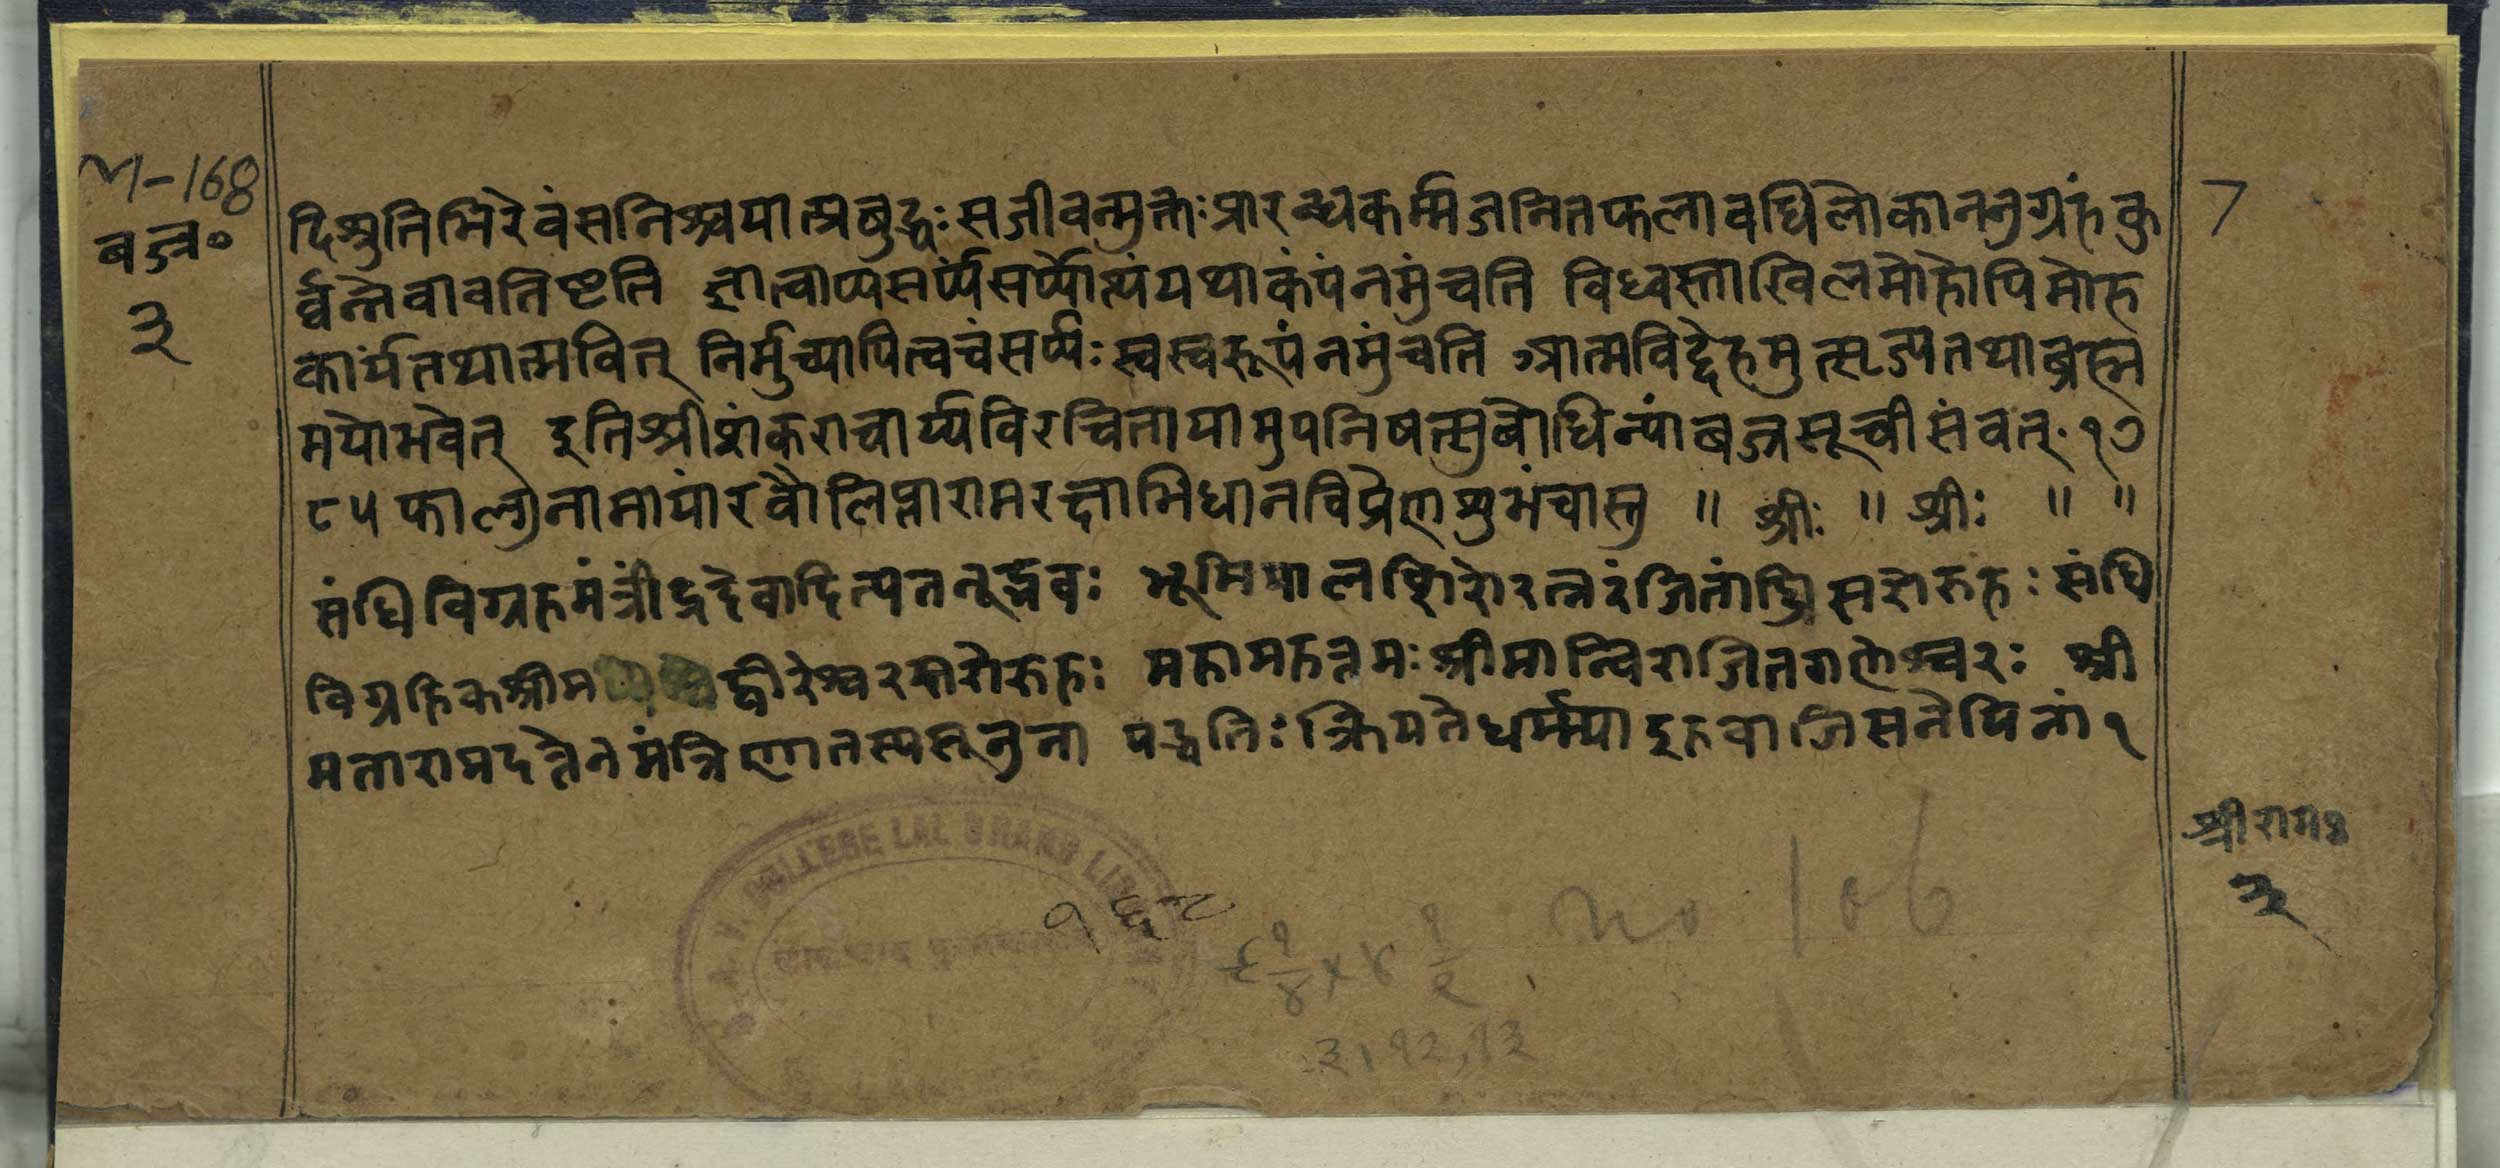 M-168
बज्र॰
३
दिश्रुतिभिरेवंसनिश्चयात्प्रबुद्धःसजीवन्मुक्तःप्रारब्धकर्म्मजनितफलावधिलोकाननुग्रहंकु
र्व्वन्नेवावतिष्टति ज्ञात्वाप्यसर्प्पंसर्प्पोत्थंयथाकंपंनमुंचति विध्वस्ताखिलमोहोपिमोह
कार्यंतथात्मवित् निर्मुच्यापित्वचंसर्प्पः स्वस्वरूपंनमुंचति आत्मविद्देहमुत्सृज्यतथाब्रह्म
मयोभवेत् इतिश्रीशंकराचार्य्यविरचितायामुपनिषत्सुबोधिन्यांबज्रसूची संवत् १७
८५ फाल्गुनामायांरवौलिप्तारामरत्नाभिधानविप्रेणशुभंचास्तु ॥ श्रीः ॥ श्रीः ॥ ॥
संधिविग्रहमंत्रींद्रदेवादित्यतनूद्भवः भूमिपालशिरोरत्नरंजितांघ्रिसरोरुहः संधि
विग्रहिकश्रीम द्वीरेश्वरसरोरुहः महामहत्तमःश्रीमान्विराजितगणेश्वरः श्री
मतारामदत्तेनमंत्रिणातस्यसूनुना पद्धतिःक्रियतेधर्म्म्याइहवाजिसनेयिनां १
7
श्रीरामः
३
D.A.V. COLLEGE LAL CHAND LIBRARY
१६८
no 106
९ १/४ × ४ १/२
३। १२, १३